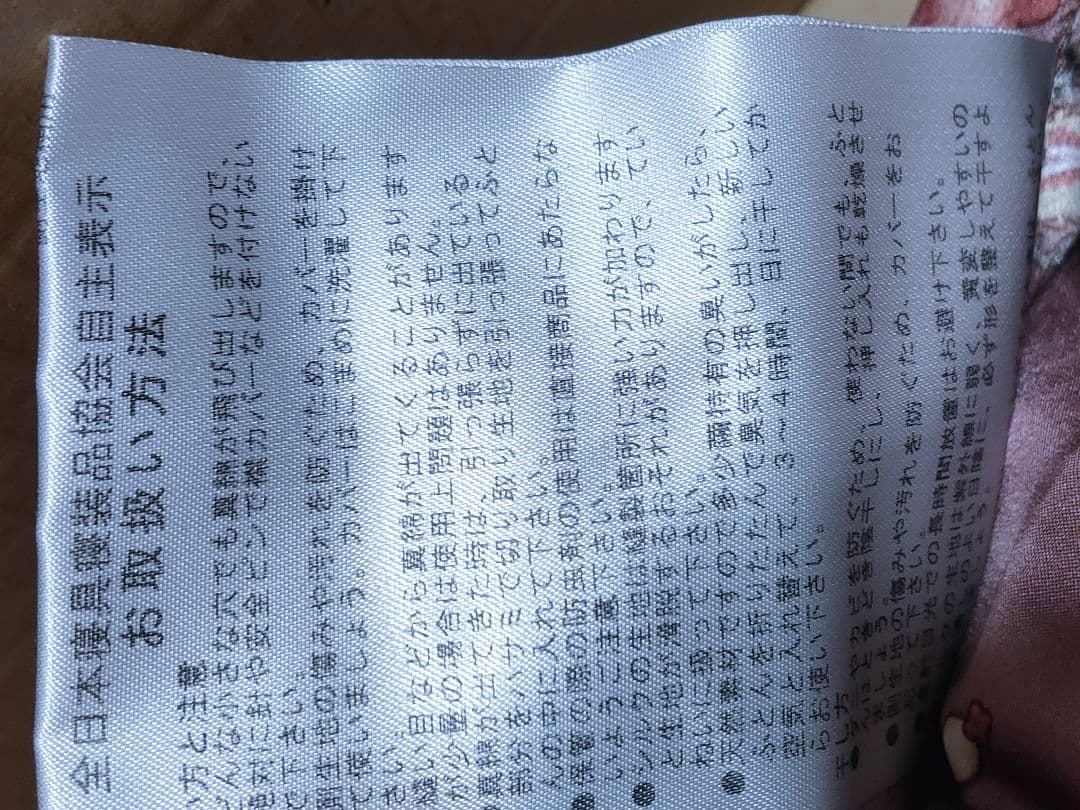 全日本寝具寝装品協会自主表示
お取扱い方法
い方と注意
どんな小さな穴でも真綿が飛び出しますので、
絶対に針や安全ピンで襟カバーなどを付けない
で下さい。
側生地の傷みや汚れを防ぐため、カバーを掛け
て使いましょう。カバーはこまめに洗濯して下
さい。
縫い目などから真綿が出てくることがあります
が少量の場合は使用上問題はありません。
真綿が出てきた時は、引っ張らずに出ている
部分をハサミで切り取り生地を引っ張ってふと
んの中に入れて下さい。
●保管の際の防虫剤の使用は直接商品にあたらな
いようご注意下さい。
●シルクの生地は縫製箇所に強い力が加わります
と生地が滑脱するおそれがありますので、てい
ねいに扱って下さい。
●天然素材ですので多少繭特有の臭いがしたら、
ふとんを折りたたんで臭気を押し出し、新しい
空気と入れ替えて、3〜4時間、日に干してか
らお使い下さい。
干し方
●ダニやカビを防ぐため、使わない間でもふと
んはときどき陰干しにし、押し入れも乾燥させ
ましょう。
●側生地の傷みや汚れを防ぐため、カバーをお
おって下さい。
日光での長時間放置はお避け下さい。
の生地は紫外線に弱く、黄変しやすいの
のよい日陰に、必ず形を整えて干すよ
しましょう。